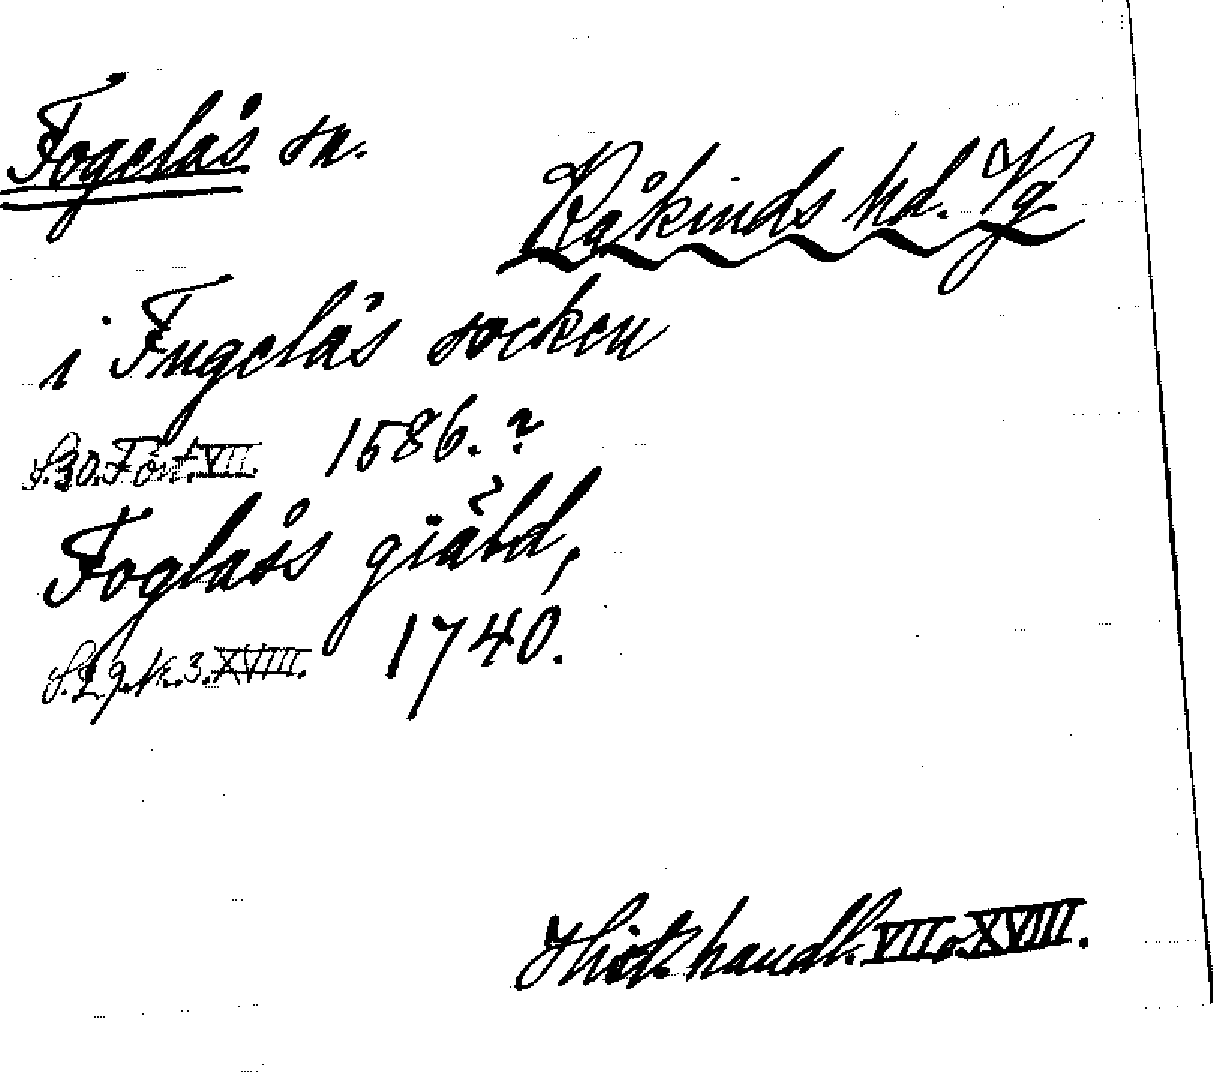 Fogelås sn.
Kåkinds hd. Vg
i Fugelås socken
S.30. Fört. VII. 1586.?
Foglåss giäld,
S.29. N:o 3. XVIII. 1740.
Hist. handl. VII o. XVIII.